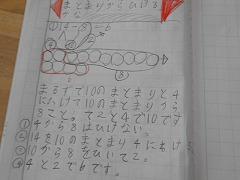 まとまりからひける
①14-8=6
⑧
まず14を10のまとまりと4
にわけて10のまとまりから
8こをひいて2と4で10です
①4から8はひけない。
②14を10のまとまり4にわける
③10から8をひいて2。
④4と2で6です。